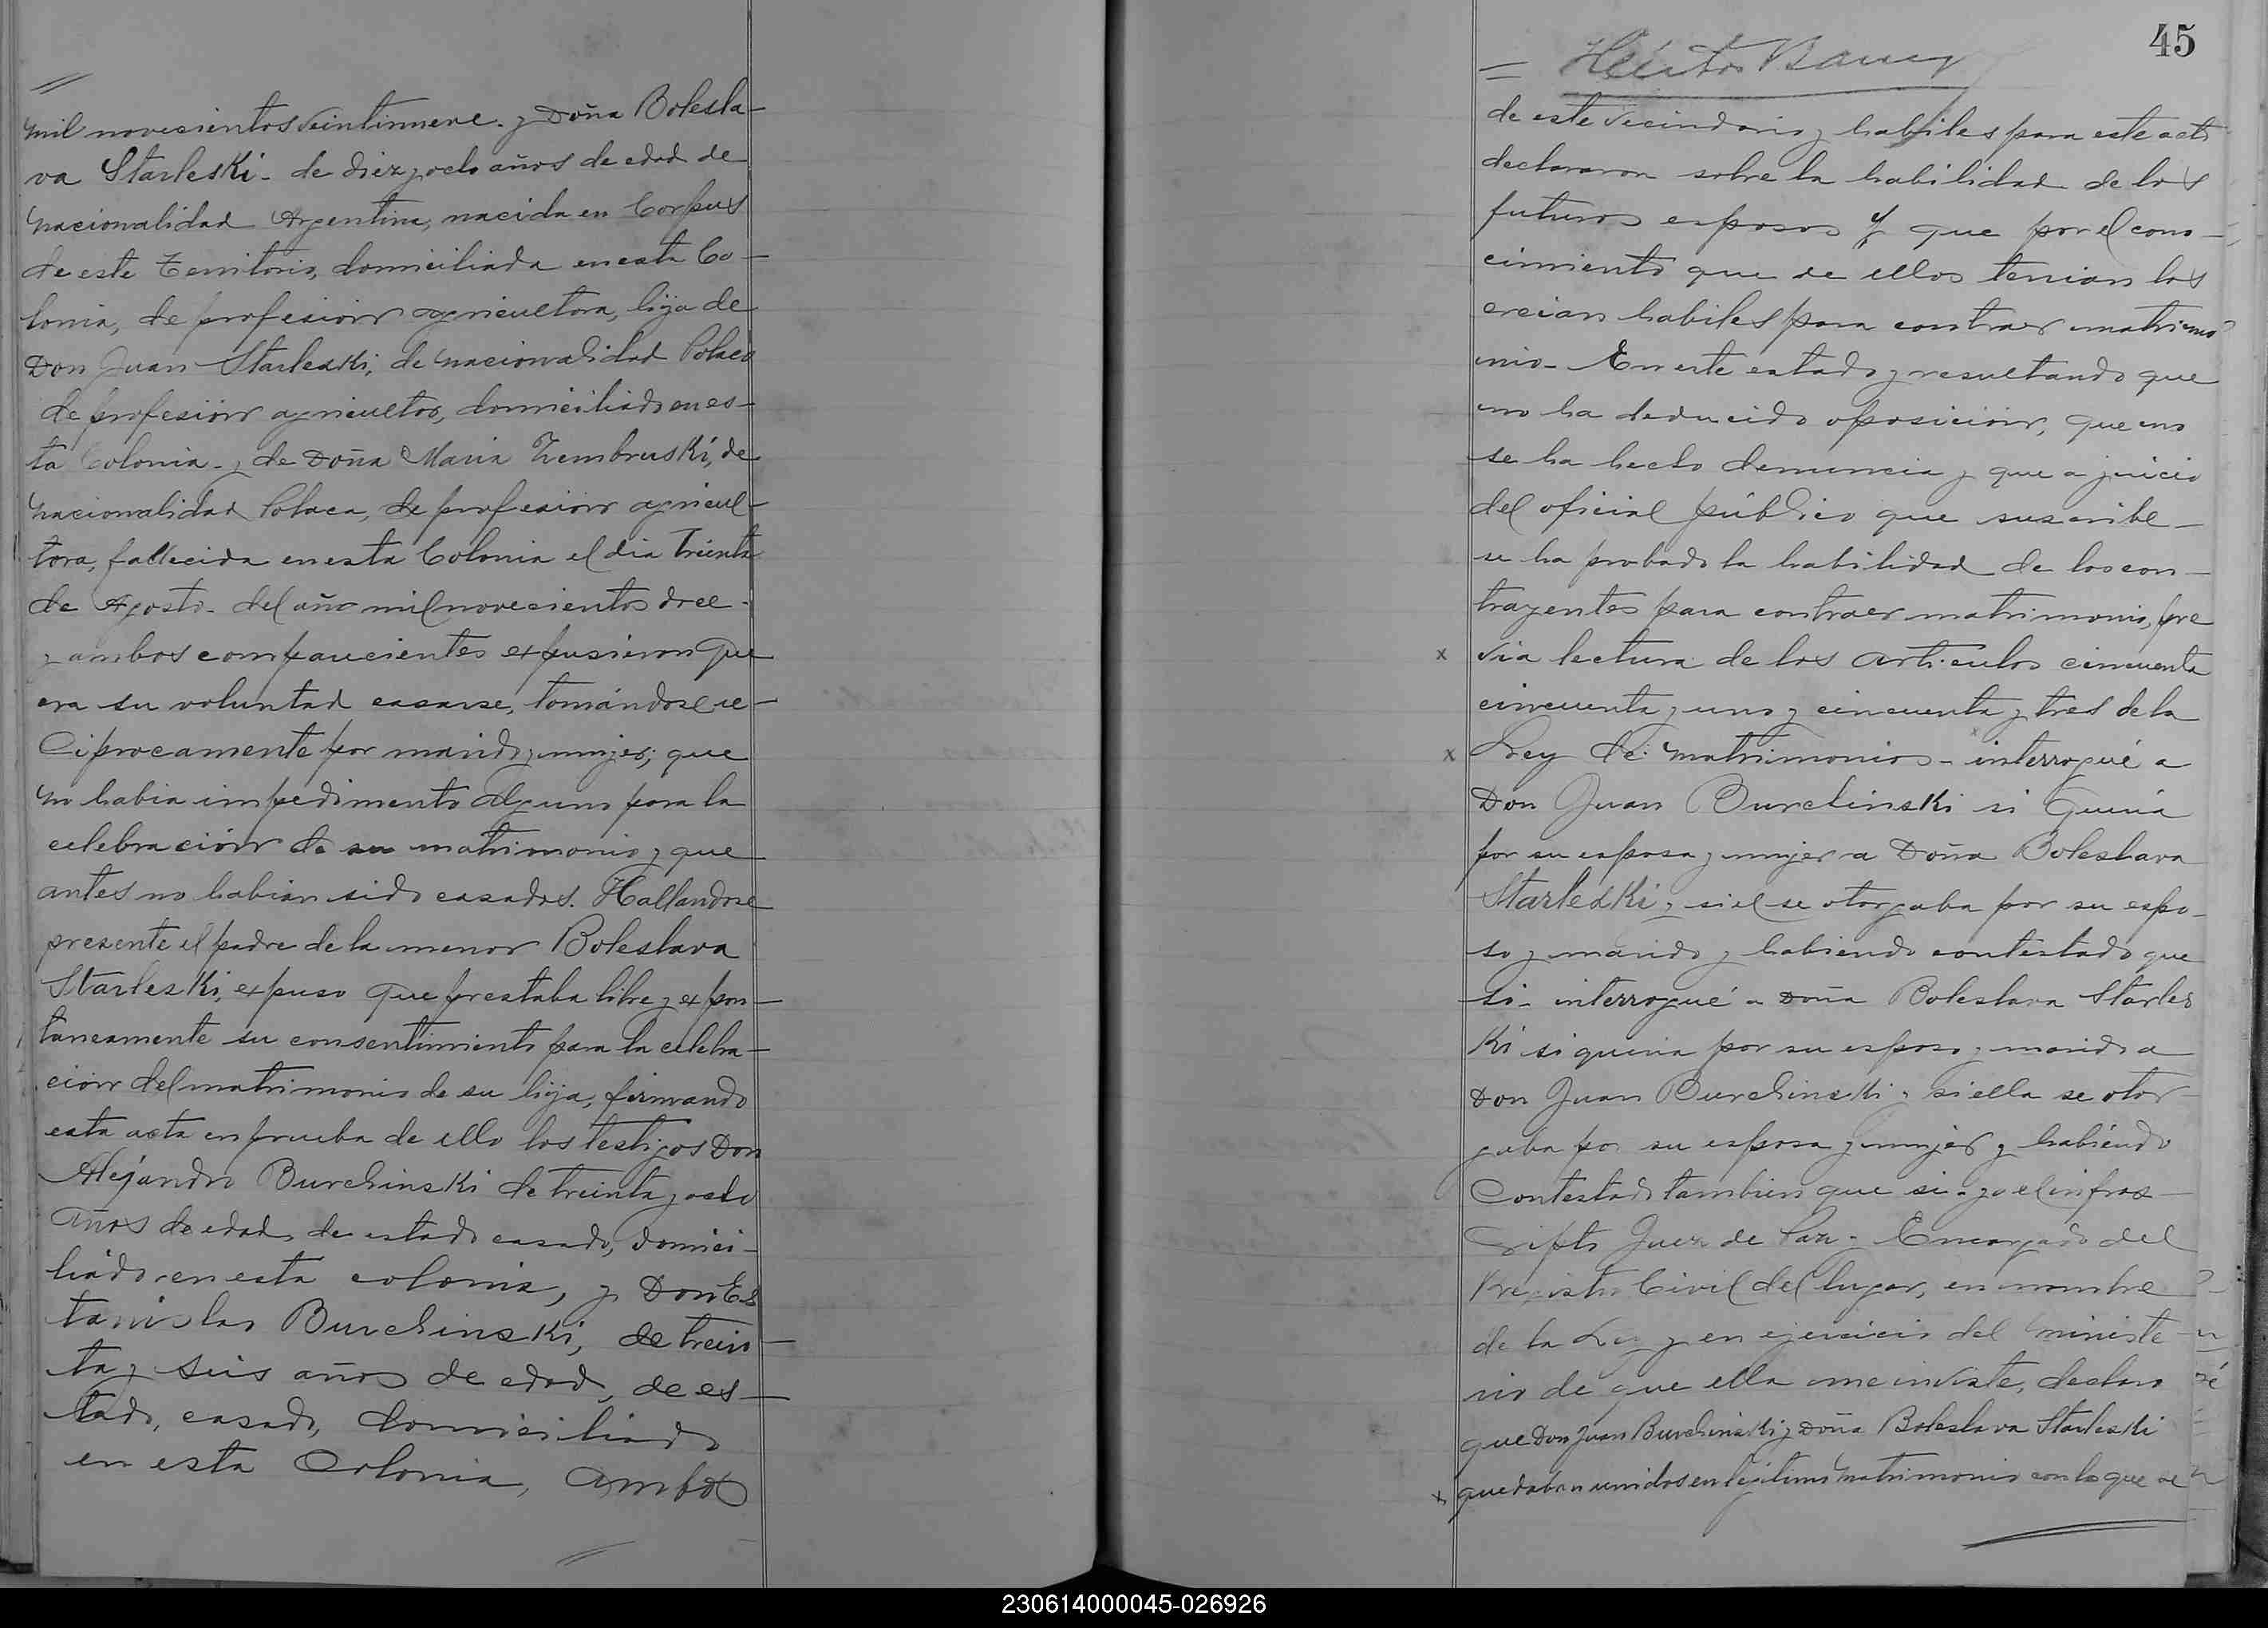 mil novecientos veintinueve. y Doña Bolesla-
va Starleski - de diez y ocho años de edad de
nacionalidad Argentina, nacida en Corpus
de este Territorio, domiciliada en esta Co-
lonia, de profesión agricultora, hija de
Don Juan Starleski, de nacionalidad Polaco
de profesión agricultor, domiciliado en es-
ta Colonia - y de Doña Maria Zembruski, de
nacionalidad Polaca, de profesión agricul-
tora, fallecida en esta Colonia el dia treinta
de Agosto - del año mil novecientos doce -
y ambos comparecientes expusieron que
era su voluntad casarse, tomándose re-
ciprocamente por marido y mujer; que
no habia impedimento alguno para la
celebración de su matrimonio y que
antes no habian sido casados. Hallandose
presente el padre de la menor Boleslava
Starleski, expuso que prestaba libre y expon-
taneamente su consentimiento para la celebra-
ción del matrimonio de su hija, firmando
esta acta en prueba de ello los testigos Don
Alejandro Burchinski de treinta y ocho
años de edad de estado casado, domici-
liado en esta colonia, y Don Es
tanislao Burchinski, de trein-
ta y seis años de edad, de es-
tado, casado, domiciliado
en esta Colonia, ambos
45
de este vecindario y habiles para este acto
declararon sobre la habilidad de los
futuros esposos y que por el cono-
cimiento que de ellos tenian los
creian habiles para contraer matrimo
nio - En este estado y resultando que
no ha deducido oposición, que no
se ha hecho denuncia y que a juicio
del oficial público que suscribe -
se ha probado la habilidad de los con-
trayentes para contraer matrimonio, pre
x via lectura de los articulos cincuenta
cincuenta y uno y cincuenta y tres de la
x Ley de matrimonios - interrogué a
Don Juan Burchinski si queria
por su esposa y mujer a Doña Boleslava
Starleski y si el se otorgaba por su espo-
so y marido y habiendo contestado que
si - interrogué a Doña Boleslava Starles
Ki si queria por su esposo y marido a
Don Juan Burchinski y si ella se otor-
gaba por su esposa y mujer y habiendo
Contestado tambien que si - yo el infras-
cripto Juez de Paz - Encargado del
Registro Civil del lugar, en nombre
de la Ley y en ejercicio del ministe-
rio de que ella me inviste, declaro
que Don Juan Burchinski y Doña Boleslava Starleski
x quedaban unidos en legitimo matrimonio con lo que se
230614000045-026926